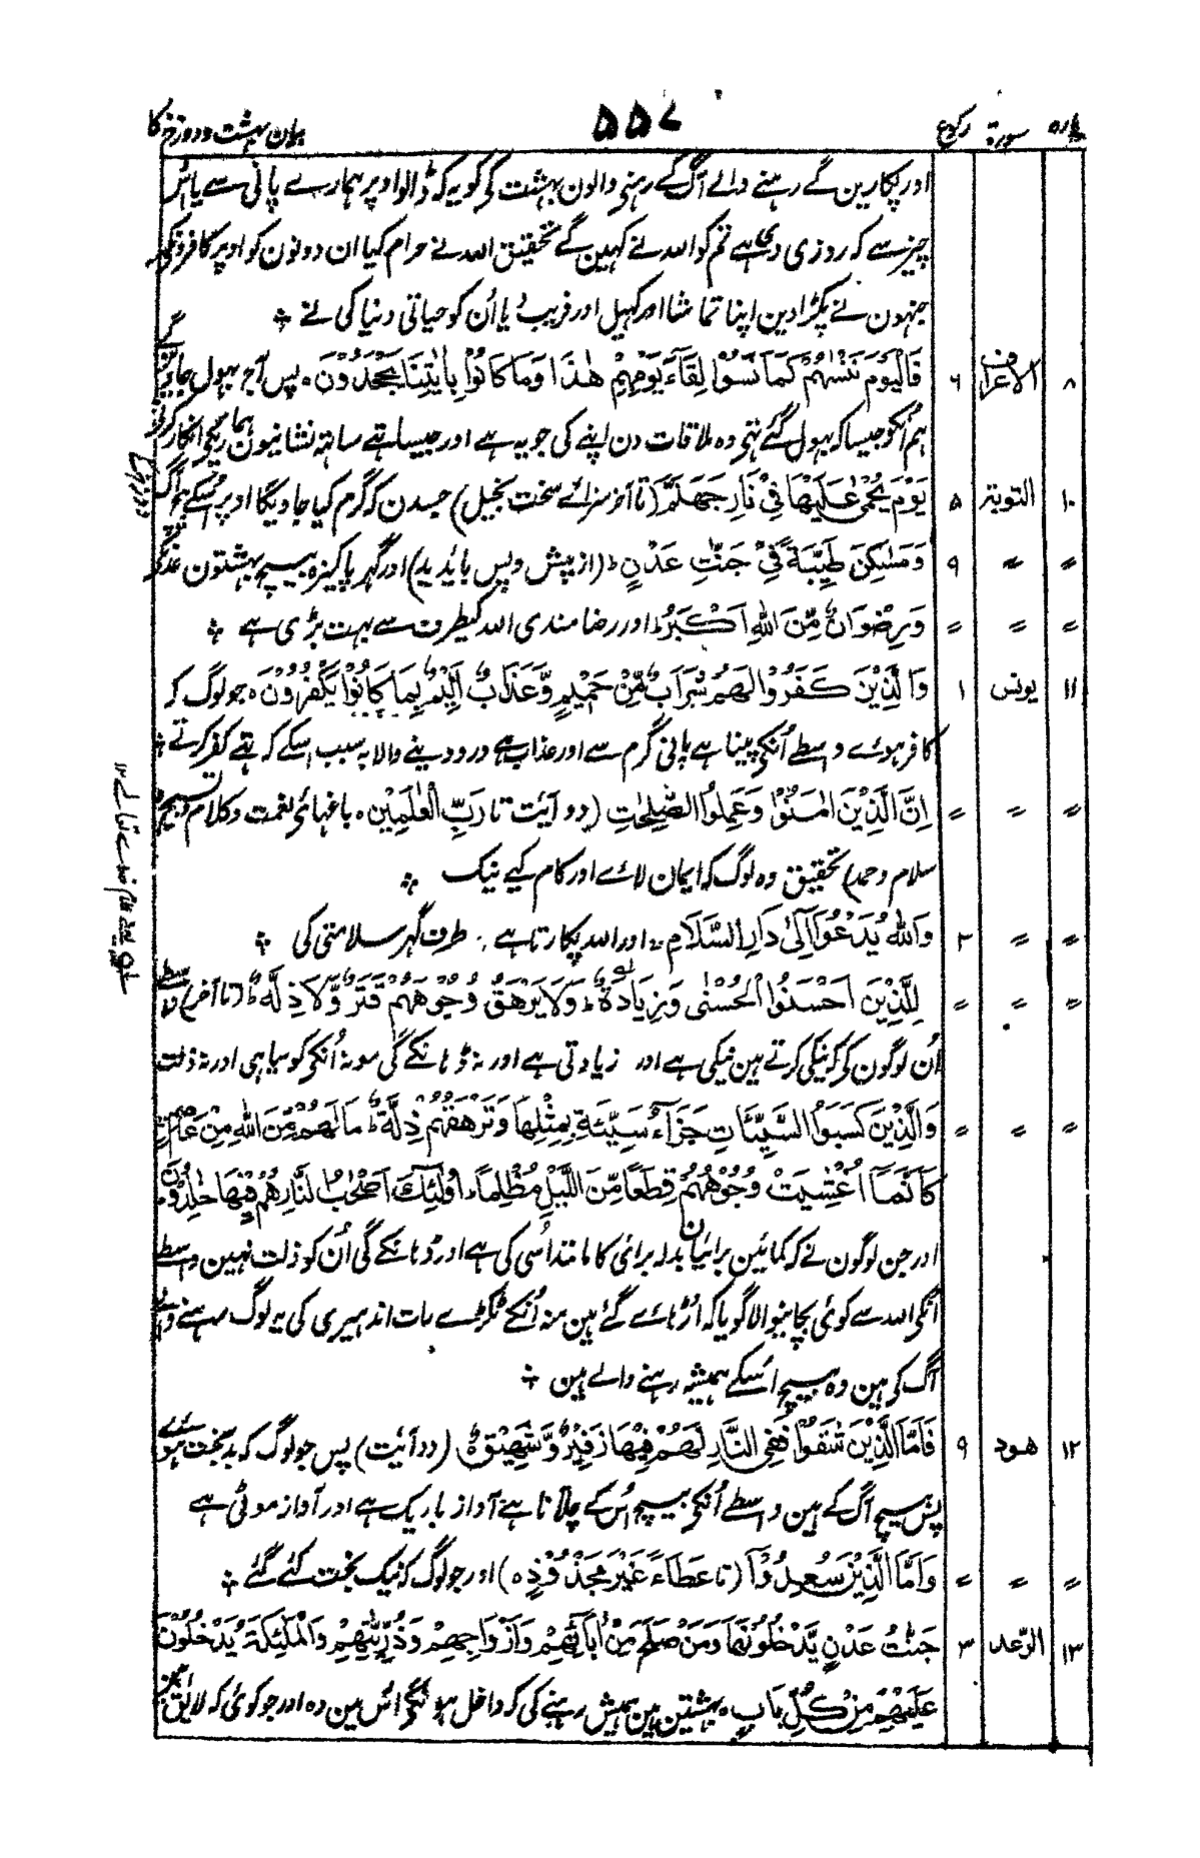 پارہ سورۃ رکوع ۵۵۷ بیان بہشت و دوزخ کا
اور پکارین گے رہنے والے آگ کے رہنی والون بہشت کی کو یہ کہ ڈالو اوپر ہمارے پانی سے یا اس
چیز سے کہ روزی دی ہے تم کو اللہ نے کہین گے تحقیق اللہ نے حرام کیا ان دونون کو اوپر کافرونکی
جنہون نے پکڑا دین اپنا تماشا اور کہیل اور فریب دیا اُن کو حیاتی دنیا کی نے
۸ الاعراف ۶ فَالْيَوْمَ نَنْسٰهُمْ كَمَا نَسُوْا لِقَآءَ يَوْمِهِمْ هٰذَا وَمَا كَانُوْا بِاٰيٰتِنَا يَجْحَدُوْنَ ہ پس آج بہول جائینگے
ہم اُنکو جیسا کہ بہول گئے تہی وہ ملاقات دن اپنے کی جو یہ ہے اور جیسا تہے ساتہ نشانیون ہماریکی انکار کرتی
۱۰ التوبۃ ۵ يَوْمَ يُحْمٰى عَلَيْهَا فِيْ نَارِ جَهَنَّمَ (تا آخر سزائے سخت بخیل) جسدن کہ گرم کیا جاویگا اوپر اُسکے بیچ آگ دوزخ کے
〃 〃 ۹ وَمَسٰكِنَ طَيِّبَةً فِيْ جَنّٰتِ عَدْنٍ ط (از پیش و پس باید دید) اور گہر پاکیزہ بیچ بہشتون عدن کے
〃 〃 〃 وَرِضْوَانٌ مِّنَ اللّٰهِ اَكْبَرُ ط اور رضامندی اللہ کیطرف سے بہت بڑی ہے
۱۱ یونس ۱ وَالَّذِيْنَ كَفَرُوْا لَهُمْ شَرَابٌ مِّنْ حَمِيْمٍ وَّعَذَابٌ اَلِيْمٌ بِمَا كَانُوْا يَكْفُرُوْنَ ہ جو لوگ کہ
کافر ہوے واسطے اُنکی پینا ہے پانی گرم سے اور عذاب ہے درد دینے والا بہ سبب اسکے کہ تہے کفر کرتے
〃 〃 〃 اِنَّ الَّذِيْنَ اٰمَنُوْا وَعَمِلُوا الصّٰلِحٰتِ (دو آیت تا رَبِّ الْعٰلَمِيْنَ ہ باغہائے نعمت و کلام تسبیح و
سلام و حمد) تحقیق وہ لوگ کہ ایمان لائے اور کام کیے نیک
〃 〃 ۳ وَاللّٰهُ يَدْعُوْا اِلٰى دَارِ السَّلَامِ ط اور اللہ پکارتا ہے طرف گہر سلامتی کی
〃 〃 〃 لِلَّذِيْنَ اَحْسَنُوا الْحُسْنٰى وَزِيَادَةٌ ط وَلَا يَرْهَقُ وُجُوْهَهُمْ قَتَرٌ وَّلَا ذِلَّةٌ ط (تا آخر) واسطے
اُن لوگون کی کہ نیکی کرتے ہین نیکی ہے اور زیادتی ہے اور نہ ڈہانکے گی مونہ اُنکی کو سیاہی اور نہ ذلت
〃 〃 〃 وَالَّذِيْنَ كَسَبُوا السَّيِّئَاتِ جَزَآءُ سَيِّئَةٍ بِمِثْلِهَا وَتَرْهَقُهُمْ ذِلَّةٌ ط مَا لَهُمْ مِّنَ اللّٰهِ مِنْ عَاصِمٍ
كَاَنَّمَآ اُغْشِيَتْ وُجُوْهُهُمْ قِطَعًا مِّنَ اللَّيْلِ مُظْلِمًا ط اُولٰٓئِكَ اَصْحٰبُ النَّارِ هُمْ فِيْهَا خٰلِدُوْنَ
اور جن لوگون نے کہ کمائین برائیان بدلہ برائی کا مانند اُسی کی ہے اور ڈہانکے گی اُن کو ذلت نہین واسطے
اُنکی اللہ سے کوئی بچانیوالا گویا کہ اُڑہائے گئے ہین منہ اُنکے ٹکڑے رات اندہیری کی یہ لوگ رہنے والے
آگ کی ہین وہ بیچ اسکے ہمیشہ رہنے والے ہین
۱۲ ھود ۹ فَاَمَّا الَّذِيْنَ شَقُوْا فَفِي النَّارِ لَهُمْ فِيْهَا زَفِيْرٌ وَّشَهِيْقٌ ہ (دو آیت) پس جو لوگ کہ بدبخت ہوئے
پس بیچ آگ کے ہین واسطے اُنکی بیچ اُس کے چلّانا ہے آواز باریک ہے اور آواز موٹی ہے
〃 〃 〃 وَاَمَّا الَّذِيْنَ سُعِدُوْا (تا عَطَآءً غَيْرَ مَجْذُوْذٍ ہ) اور جو لوگ کہ نیک بخت کئے گئے
۱۳ الرّعد ۳ جَنّٰتُ عَدْنٍ يَّدْخُلُوْنَهَا وَمَنْ صَلَحَ مِنْ اٰبَآئِهِمْ وَاَزْوَاجِهِمْ وَذُرِّيّٰتِهِمْ وَالْمَلٰٓئِكَةُ يَدْخُلُوْنَ
عَلَيْهِمْ مِّنْ كُلِّ بَابٍ ہ بہشتین ہین ہمیش رہنے کی کہ داخل ہونگے اُس مین وہ اور جو کوئی کہ لائق